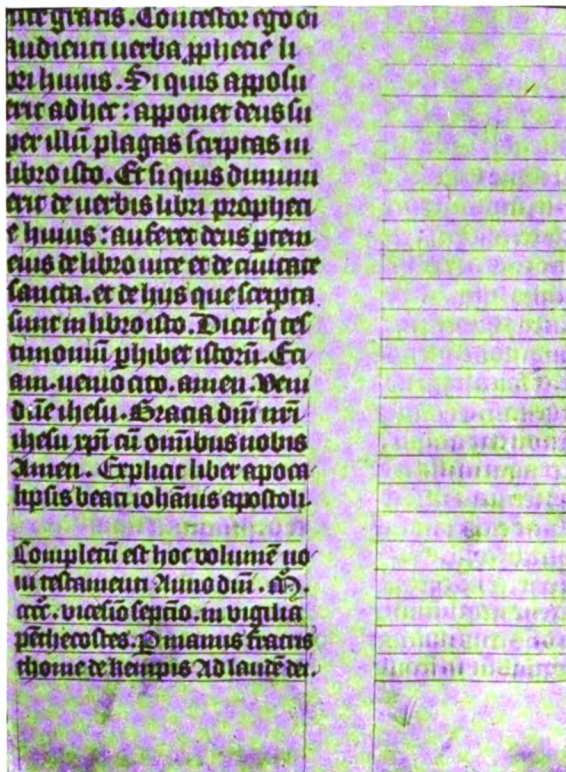 uite gratis. Contestor ego oī
audienti uerba pphecie li
bri huius. Si quis apposu
erit ad hec: apponet deus su
per illū plagas scriptas in
libro isto. Et si quis diminu
erit de uerbis libri propheti
e huius: auferet deus ptem
eius de libro uite et de ciuitate
sancta. et de hijs que scripta
sunt in libro isto. Dicit q tes
timoniū phibet istorū. Eci
am. uenio cito. amen. Veni
dn̄e ihesu. Gracia dn̄i nr̄i
ihesu xp̄i cū omībus uobis
Amen. Explicit liber apoca
lipsis beati iohānis apostoli.
Completū est hoc volumē no
ui testamenti Anno dn̄i. M̊.
cccc̊. vicesīo septīo. in vigilia
pēthecostes. P manus fratris
thome de kempis Ad laudē dei.